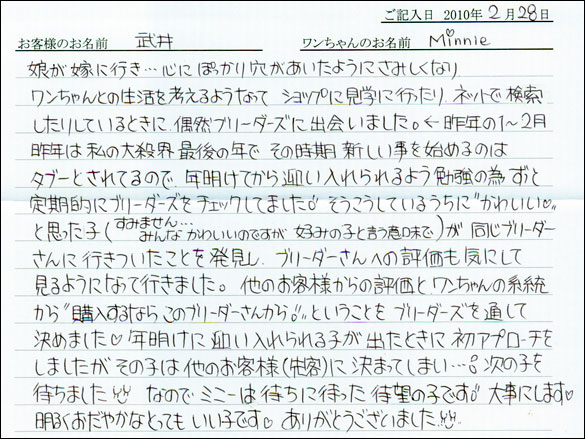 ご記入日 2010年2月28日
お客様のお名前 武井 ワンちゃんのお名前 Minnie
娘が嫁に行き…心にぽっかり穴があいたようにさみしくなり
ワンちゃんとの生活を考えるようなって ショップに見学に行ったり ネットで検索
したりしているときに 偶然ブリーダーズに出会いました。←昨年の1〜2月
昨年は私の大殺界 最後の年で その時期 新しい事を始めるのは
タブーとされてるので 年明けてから迎い入れられるよう勉強の為 ずと
定期的にブリーダーズをチェックしてました♪ そうこうしているうちに"かわいい♡"
と思った子(すみません… みんなかわいいのですが 好みの子と言う意味で)が 同じブリーダー
さんに行きついたことを発見し ブリーダーさんへの評価も気にして
見るようになって行きました。 他のお客様からの評価とワンちゃんの系統
から"購入するなら このブリーダーさんから♪"ということを ブリーダーズを通して
決めました♡ 年明けに迎い入れられる子が出たときに 初アプローチを
しましたが その子は他のお客様(先客)に決まってしまい…♪ 次の子を
待ちました!! なので ミニーは 待ちに待った 待望の子です♪ 大事にします♡
明るくおだやかなとっても いい子です♡ ありがとうございました!!